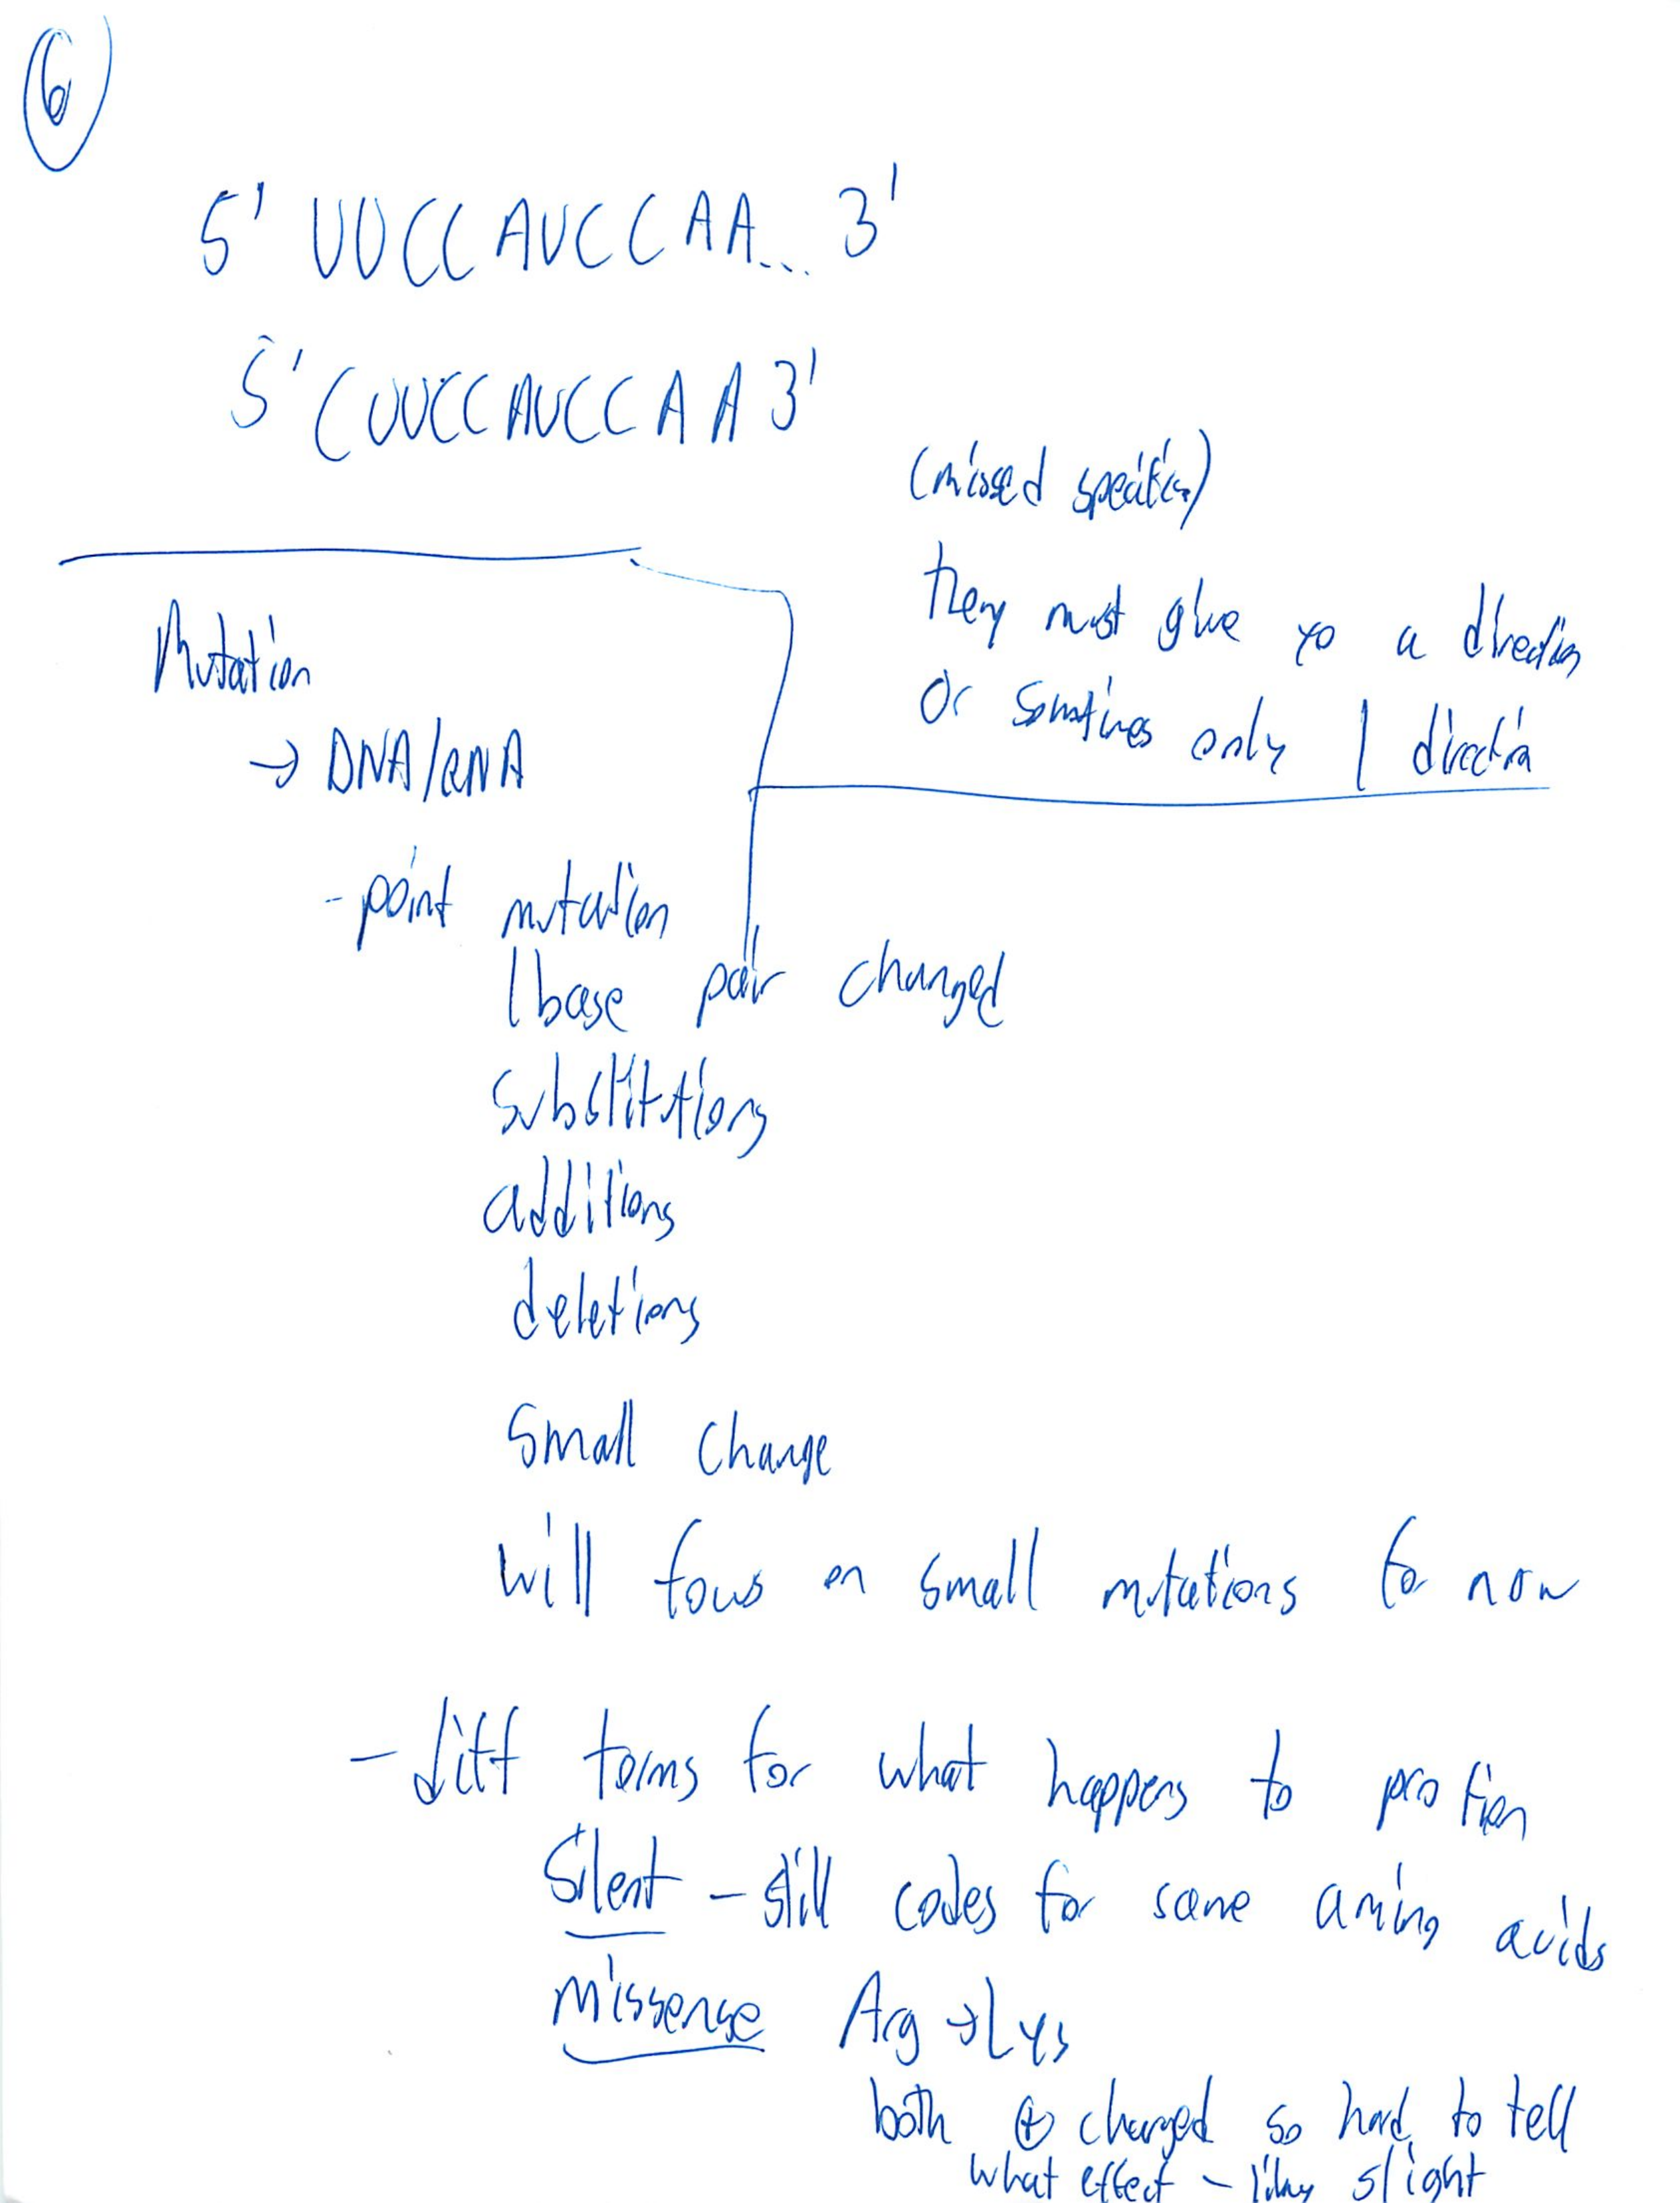 6
5' UUCCAUCCAA... 3'
5' CUUCCAUCCAA 3'
(missed specifics)
they must give yo a direction
or somtimes only 1 direction
Mutation
→ DNA/RNA
- point mutation
1 base pair changed
substitutions
additions
deletions
small change
will focus on small mutations for now
- diff terms for what happens to protien
Silent - still codes for same amino acids
Missense Arg → Lys
both ⊕ charged so hard to tell
what effect - likly slight